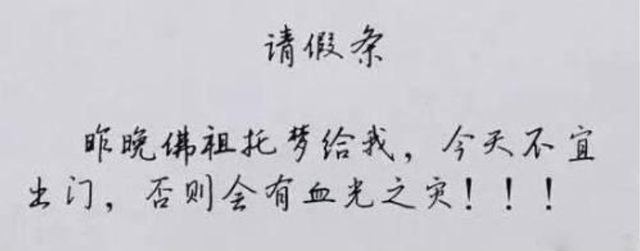 请假条
昨晚佛祖托梦给我，今天不宜
出门，否则会有血光之灾！！！